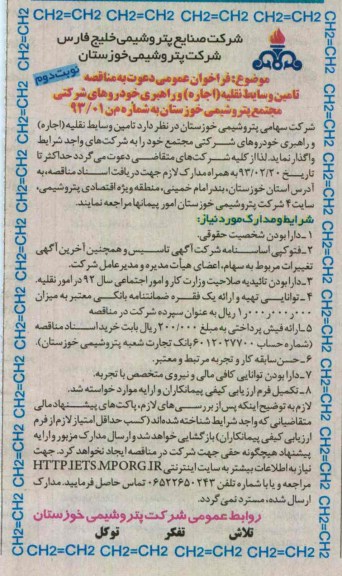 CH2=CH2 CH2=CH2 CH2=CH2 CH2=CH2 CH2=CH2
شرکت صنایع پتروشیمی خلیج فارس
شرکت پتروشیمی خوزستان
نوبت دوم
موضوع: فراخوان عمومی دعوت به مناقصه
تامین وسایط نقلیه (اجاره) و راهبری خودروهای شرکتی
مجتمع پتروشیمی خوزستان به شماره من ۹۳/۰۱
شرکت سهامی پتروشیمی خوزستان در نظر دارد تامین وسایط نقلیه (اجاره)
و راهبری خودروهای شرکتی مجتمع خود را به شرکت‌های واجد شرایط
واگذار نماید. لذا از کلیه شرکت‌های متقاضی دعوت می‌گردد حداکثر تا
تاریخ ۹۳/۰۲/۲۰ به همراه مدارک لازم جهت دریافت اسناد مناقصه، به
آدرس استان خوزستان، بندر امام خمینی، منطقه ویژه اقتصادی پتروشیمی،
سایت ۴ شرکت پتروشیمی خوزستان امور پیمانها مراجعه نمایند.
شرایط و مدارک مورد نیاز:
۱-دارا بودن شخصیت حقوقی.
۲-فتوکپی اساسنامه شرکت آگهی تاسیس و همچنین آخرین آگهی
تغییرات مربوط به سهام، اعضای هیأت مدیره و مدیر عامل شرکت.
۳-دارا بودن تائیدیه صلاحیت وزارت کار و امور اجتماعی سال ۹۲ در امور نقلیه.
۴-توانایی تهیه و ارائه یک فقره ضمانتنامه بانکی معتبر به میزان
۱/۰۰۰/۰۰۰/۰۰۰ ریال به عنوان سپرده شرکت در مناقصه
۵-ارائه فیش پرداختی به مبلغ ۲۰۰/۰۰۰ ریال بابت خرید اسناد مناقصه
(شماره حساب ۶۰۱۲۰۲۷۷۰۰ بانک تجارت شعبه پتروشیمی خوزستان).
۶-حسن سابقه کار و تجربه مرتبط و معتبر.
۷-دارا بودن توانایی کافی مالی و نیروی متخصص با تجربه.
۸-تکمیل فرم ارزیابی کیفی پیمانکاران و ارایه موارد خواسته شد.
لازم به توضیح اینکه پس از بررسی‌های لازم، پاکت‌های پیشنهاد مالی
متقاضیانی که واجد شرایط شناخته شده‌اند (کسب حداقل امتیاز لازم از فرم
ارزیابی کیفی پیمانکاران) بازگشایی خواهد شد و ارسال مدارک مزبور و ارایه
پیشنهاد هیچگونه حقی جهت شرکت در مناقصه ایجاد نخواهد کرد. جهت
نیاز به اطلاعات بیشتر به سایت اینترنتی HTTP.IETS.MPORG.IR
مراجعه و یا با شماره تلفن ۰۶۵۲۲۶۵۰۲۴۳ تماس حاصل فرمایید. مدارک
ارسال شده، مسترد نمی گردد.
روابط عمومی شرکت پتروشیمی خوزستان
تلاش تفکر توکل
CH2=CH2 CH2=CH2 CH2=CH2 CH2=CH2 CH2=CH2